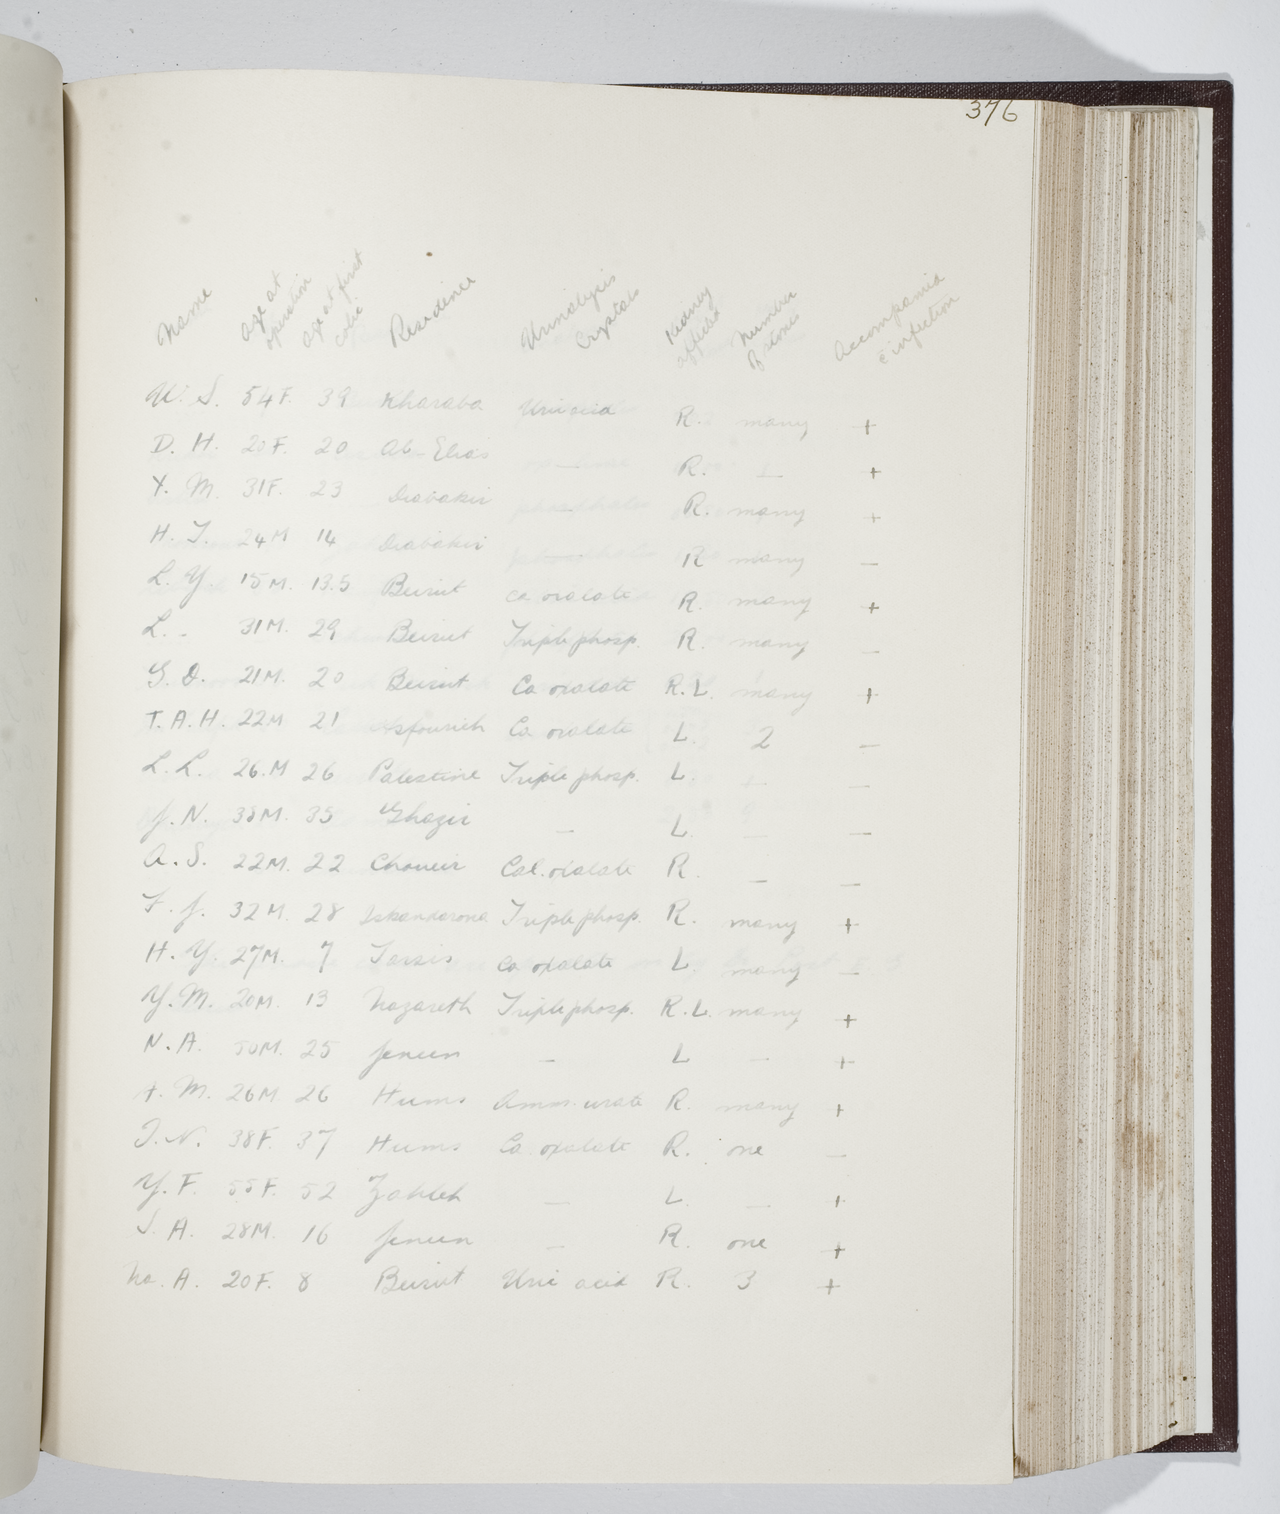 376
Name Age at operation Age at first colic Residence Urinalysis Crystals Kidney affected Number of stones Accompanied c̄ infection
W. S. 54 F. 39 Kharaba Uric acid R. many +
D. H. 20 F. 20 Ab-Elias — R. — +
Y. M. 31 F. 23 Diabakir — R. many +
H. T. 24 M 14 Diabakir — R many —
L. Y. 15 M. 13.5 Beirut Ca oxalate R. many +
L. - 31 M. 29 Beirut Triple phosp. R. many —
G. D. 21 M. 20 Beirut Ca oxalate R. L. many +
T. A. H. 22 M 21 Asfourieh Ca oxalate L. 2 —
L. L. 26. M 26 Palestine Triple phosp. L. — —
J. N. 35 M. 35 Ghazir — L. — —
A. S. 22 M. 22 Choueir Cal. oxalate R. — —
F. J. 32 M. 28 Iskanderona Triple phosp. R. many +
H. Y. 27 M. 7 Tarsis Ca oxalate L. many —
Y. M. 20 M. 13 Nazareth Triple phosp. R. L. many +
N. A. 50 M. 25 Jeneen — L — +
A. M. 26 M. 26 Hums Amm. urate R. many +
J. N. 38 F. 37 Hums Ca. oxalate R. one —
Y. F. 55 F. 52 Zahleh — L. — +
S. A. 28 M. 16 Jeneen — R. one +
Na. A. 20 F. 8 Beirut Uric acid R. 3 +